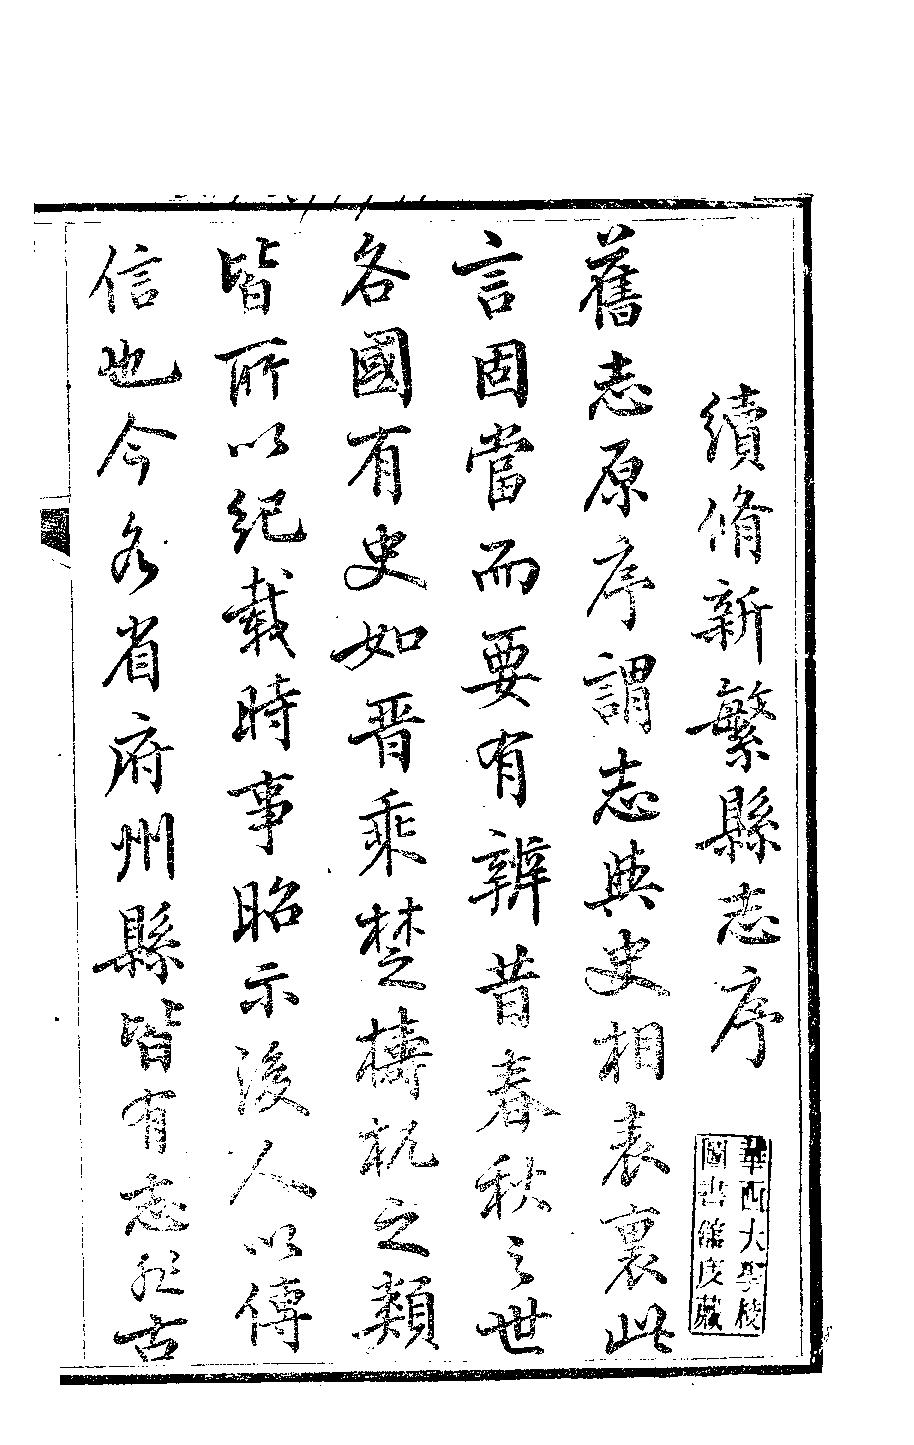 續脩新繁縣志序
華西大學校
圖書館庋藏
舊志原序謂志與史相表裏此
言固當而要有辨昔春秋之世
各國有史如晋乘楚檮杌之類
皆所以紀載時事昭示後人以傳
信也今各省府州縣皆有志然古